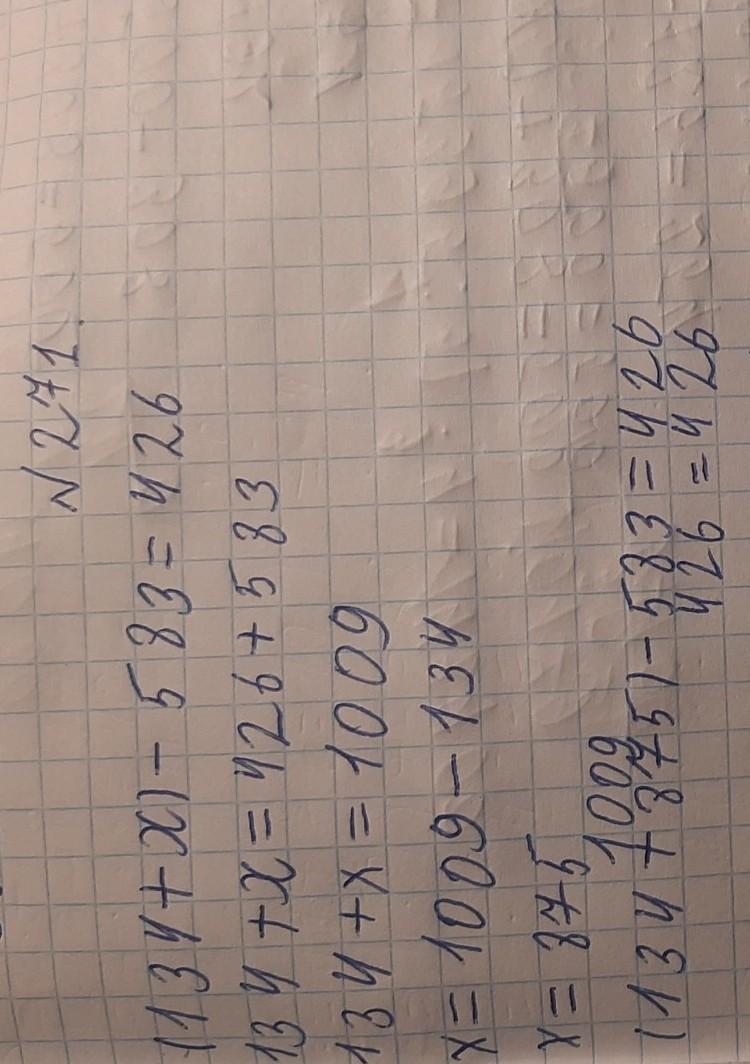 №271.
(134+x)-583=426
134+x=426+583
134+x=1009
x=1009-134
x=875
1009
(134+875)-583=426
426=426